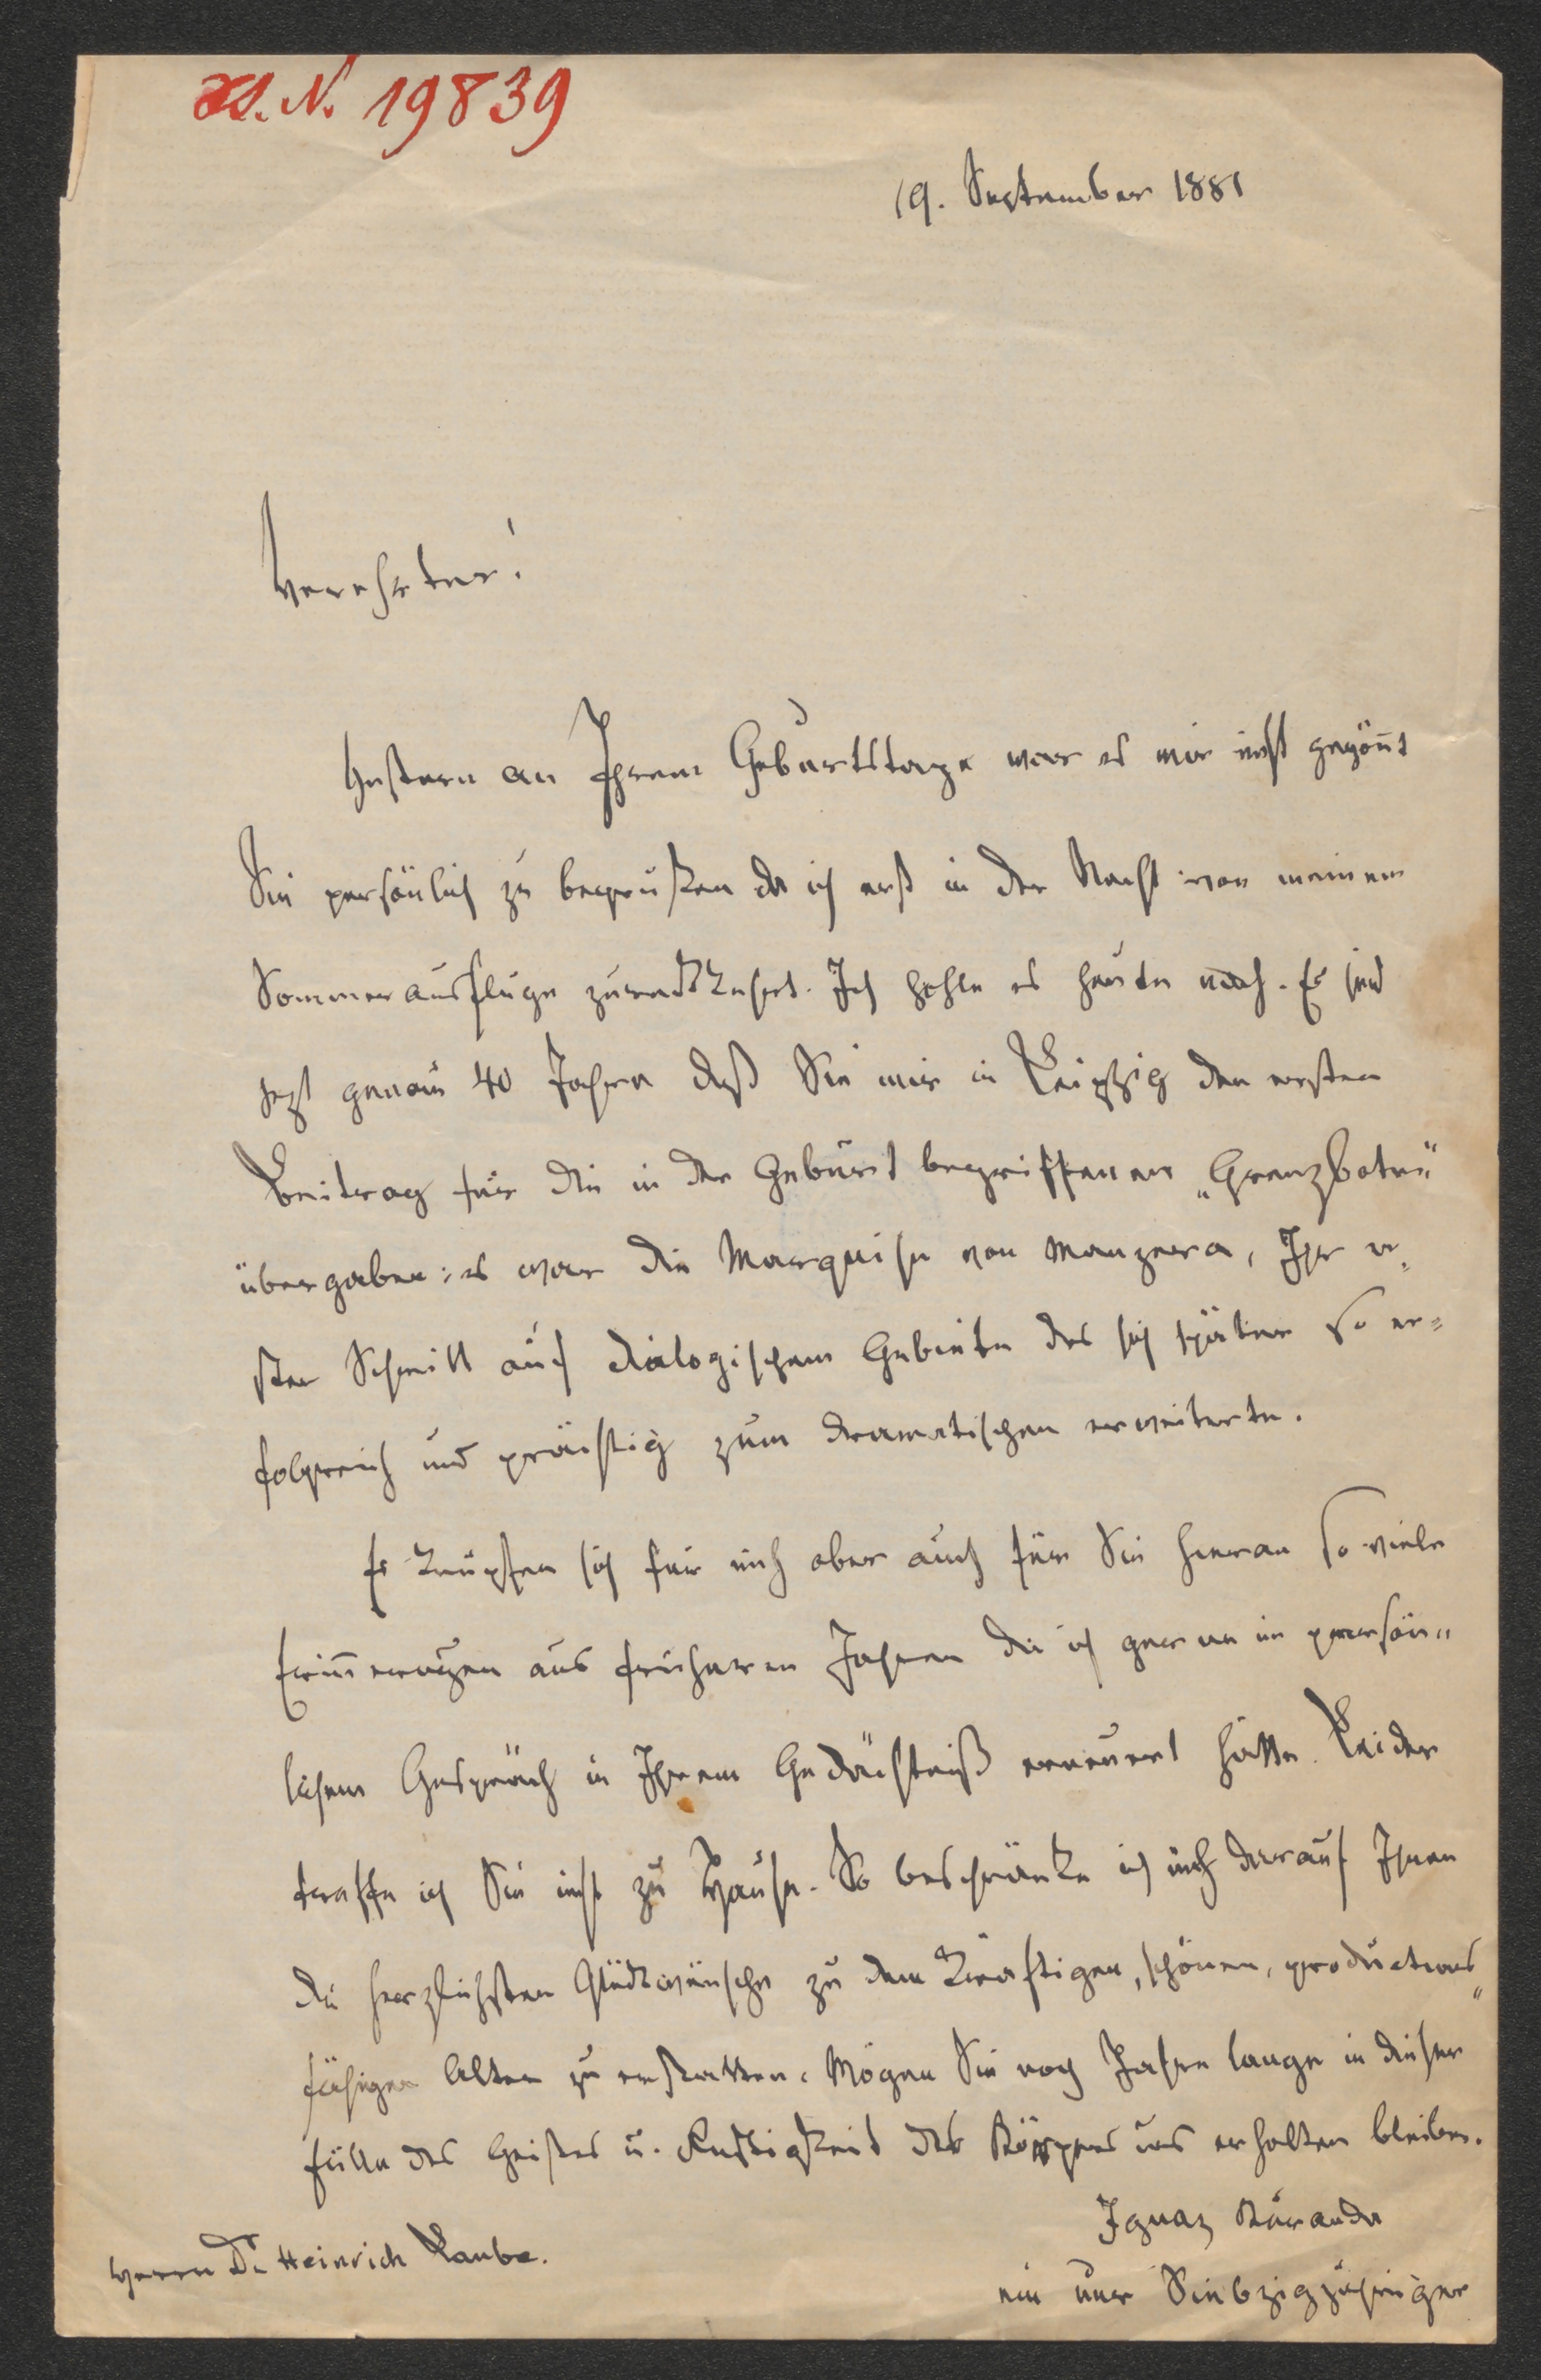 H.I.N. 19839
19. September 1881
Verehrter!
Gestern an Ihrem Geburtstage war es mir nicht gegönnt
Sie persönlich zu begrüßen da ich erst in der Nacht von meinem
Sommerausfluge zurückkehrt. Ich hohle es heute nach. Es sind
jezt genau 40 Jahre daß Sie mir in Leipzig den ersten
Beitrag für die in der Geburt begriffenen „Grenzboten"
übergaben: es war die Marquise von Manzera, Ihr er-
ster Schritt auf dialogischem Gebiete das sich später so er-
folgreich und prächtig zum dramatischen erweiterte.
Es knüpfen sich für mich aber auch für Sie hieran so viele
Erinnerungen aus früheren Jahren die ich gerne im persön-
lichem Gespräch in Ihrem Gedächtniß erneuert hätte. Leider
traffe ich Sie nicht zu Hause. So beschränke ich mich darauf Ihnen
die herzlichsten Glückwünsche zu dem kräftigen, schönen, productions-
fähigen Alter zu erstatten. Mögen Sie noch Jahre lange in dieser
Fülle des Geistes u. Rüstigkeit des Körpers uns erhalten bleiben.
Ignaz Kuranda
ein nur Siebzigjähriger
Herrn Dr Heinrich Laube.